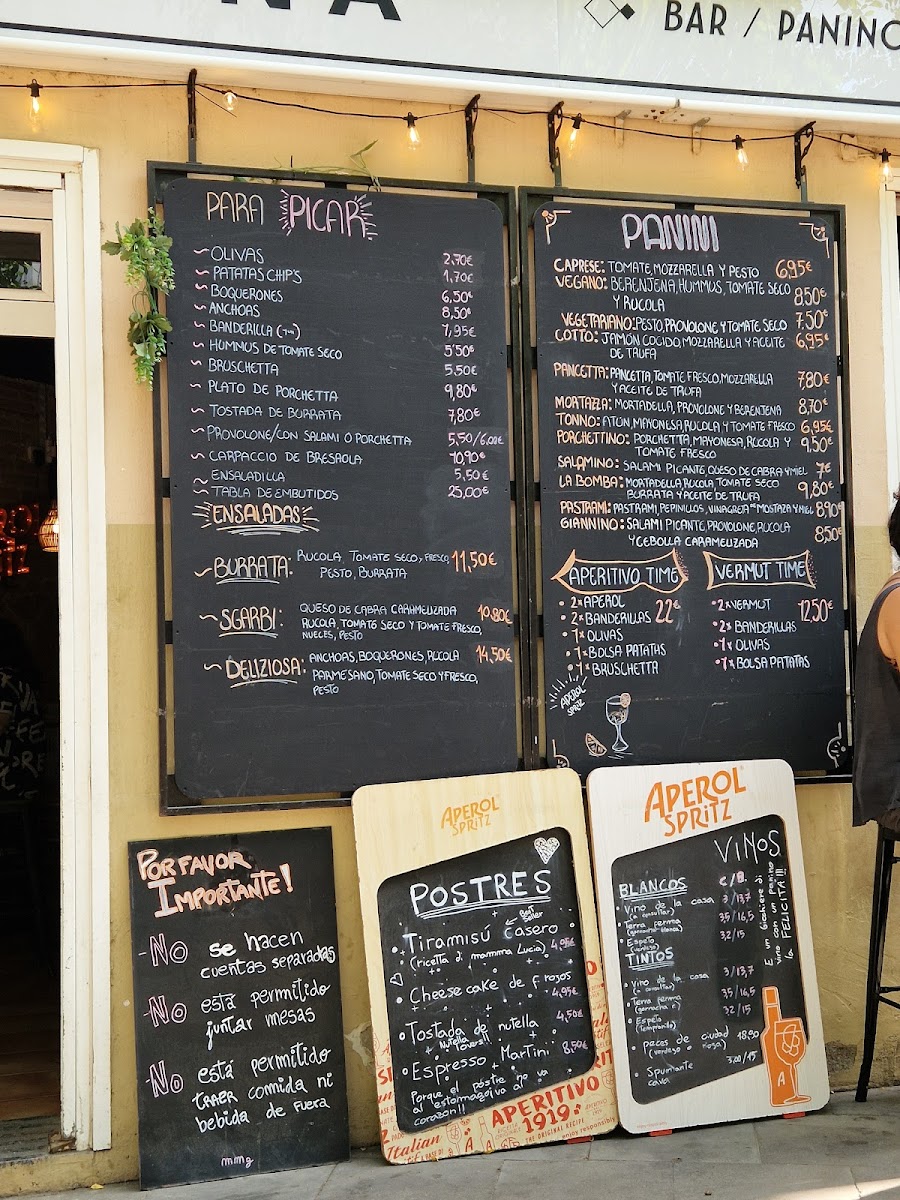 NA
BAR / PANINO
PARA PICAR
~ OLIVAS 2,70€
~ PATATAS CHIPS 1,70€
~ BOQUERONES 6,50€
~ ANCHOAS 8,50€
~ BANDERILLA 1,95€
~ HUMMUS DE TOMATE SECO 5'50€
~ BRUSCHETTA 5,50€
~ PLATO DE PORCHETTA 9,80€
~ TOSTADA DE BURRATA 7,80€
~ PROVOLONE/CON SALAMI Ó PORCHETTA 5,50/6,00€
~ CARPACCIO DE BRESAOLA 10,90€
~ ENSALADILLA 5,50€
~ TABLA DE EMBUTIDOS 25,00€
ENSALADAS
~ BURRATA: RUCOLA, TOMATE SECO Y FRESCO, 11,50€
PESTO, BURRATA
~ SGARBI: QUESO DE CABRA CARAMELIZADA 10,80€
RUCOLA, TOMATE SECO Y TOMATE FRESCO,
NUECES, PESTO
~ DELIZIOSA: ANCHOAS, BOQUERONES, RUCOLA 14,50€
PARMESANO, TOMATE SECO Y FRESCO,
PESTO
PANINI
CAPRESE: TOMATE, MOZZARELLA Y PESTO 6,95€
VEGANO: BERENJENA, HUMMUS, TOMATE SECO
Y RUCOLA 8,50€
VEGETARIANO: PESTO, PROVOLONE Y TOMATE SECO 7,50€
COTTO: JAMÓN COCIDO, MOZZARELLA Y ACEITE 6,95€
DE TRUFA
PANCETTA: PANCETTA, TOMATE FRESCO, MOZZARELLA 7,80€
Y ACEITE DE TRUFA
MORTAZZA: MORTADELLA, PROVOLONE Y BERENJENA 8,70€
TONNO: ATUN, MAYONESA, RUCOLA Y TOMATE FRESCO 6,95€
PORCHETTINO: PORCHETTA, MAYONESA, RUCOLA Y 9,50€
TOMATE FRESCO
SALAMINO: SALAMI PICANTE QUESO DE CABRA Y MIEL 7€
LA BOMBA: MORTADELLA, RUCOLA, TOMATE SECO 9,80€
BURRATA Y ACEITE DE TRUFA
PASTRAMI: PASTRAMI, PEPINILLOS, VINAGRETA DE MOSTAZA Y MIEL 8,90€
GIANNINO: SALAMI PICANTE, PROVOLONE, RUCOLA 8,50€
Y CEBOLLA CARAMELIZADA
APERITIVO TIME
• 2x APEROL 22€
• 2x BANDERILLAS
• 1x OLIVAS
• 1x BOLSA PATATAS
• 1x BRUSCHETTA
APEROL
SPRITZ
VERMUT TIME
• 2x VERMUT 12,50€
• 2x BANDERILLAS
• 1x OLIVAS
• 1x BOLSA PATATAS
POR FAVOR
IMPORTANTE!
- No se hacen
cuentas separadas
- No está permitido
juntar mesas
- No está permitido
TRAER comida ni
bebida de FUERA
mmg
APEROL
SPRITZ
POSTRES
Best
Seller
• Tiramisú casero
(ricetta di mamma Lucia) 4,95€
• Cheese cake de f. rojos
4,95€
• Tostada de nutella 4,50€
+ Nutella lovers!!
• Espresso Martini 8,50€
Porque el postre no va
al estomago, va al
corazon!!
APERITIVO
1919
THE ORIGINAL RECIPE
Italian
enjoy responsibly
APEROL
SPRITZ
VINOS
BLANCOS C/B.
• Vino de la casa 3/13,7
(a consultar)
• Terra Femma 3,5/16,5
(garnacha blanca)
• Espelo 3,2/15
(verdejo)
TINTOS
• Vino de la casa 3/13,7
(a consultar)
• Terra Femma 3,5/16,5
(garnacha t.)
• Espelo 3,2/15
(tempranillo)
• peces de ciudad 18,90
(verdejo o rosa)
• Spumante 3,00/15
cava
E un bicchiere di
vino con un panino
la FELICITÀ!!!